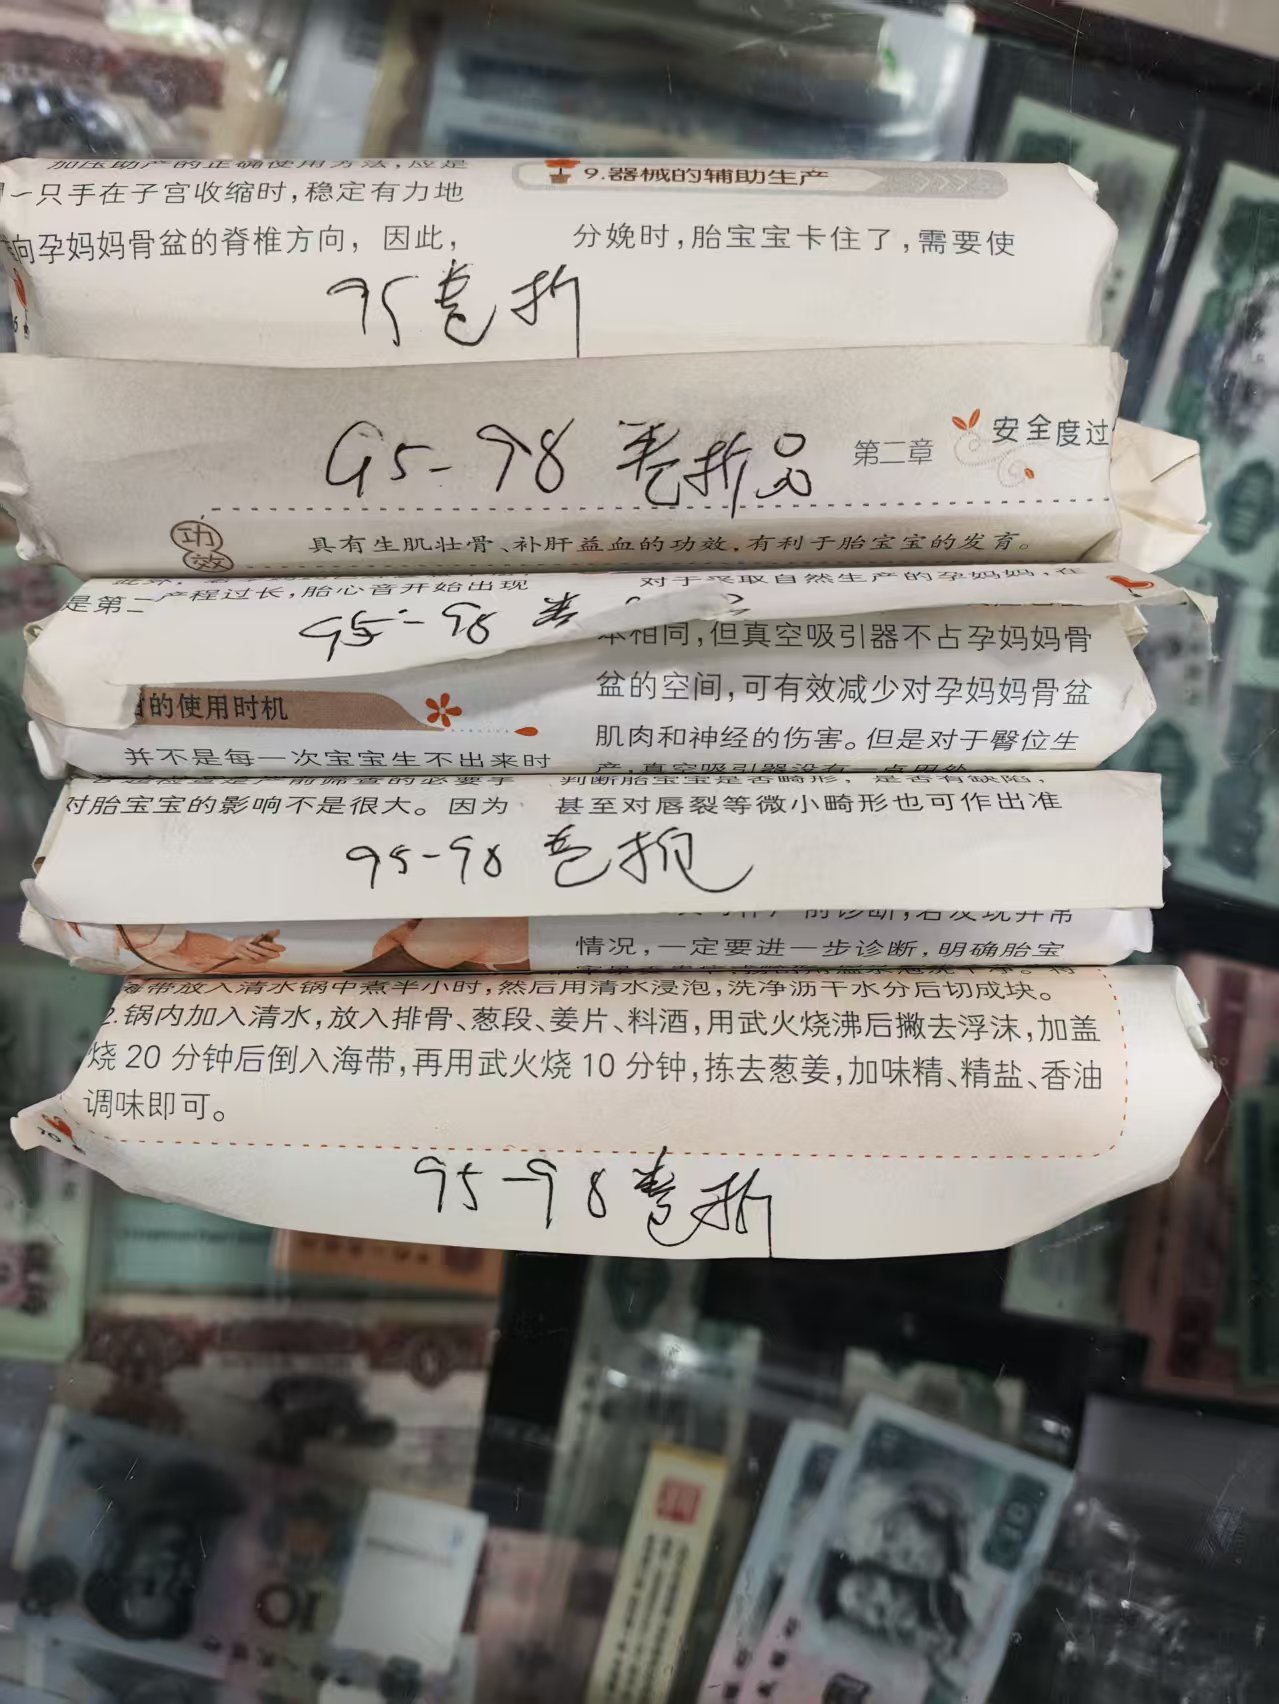 加压助产的正确使用方法，应是
一只手在子宫收缩时，稳定有力地
向孕妈妈骨盆的脊椎方向，因此，
9.器械的辅助生产
分娩时，胎宝宝卡住了，需要使
95卷拆
95-98卷拆品
第二章
安全度过
功效
具有生肌壮骨、补肝益血的功效，有利于胎宝宝的发育。
是第二产程过长，胎心音开始出现
对于采取自然生产的孕妈妈，在
95-98卷
的使用时机
并不是每一次宝宝生不出来时
本相同，但真空吸引器不占孕妈妈骨
盆的空间，可有效减少对孕妈妈骨盆
肌肉和神经的伤害。但是对于臀位生
产，真空吸引器没有一点用处
对胎宝宝的影响不是很大。因为
判断胎宝宝是否畸形，是否有缺陷，
甚至对唇裂等微小畸形也可作出准
95-98卷拆
情况，一定要进一步诊断，明确胎宝
海带放入清水锅中煮半小时，然后用清水浸泡，洗净沥干水分后切成块。
2.锅内加入清水，放入排骨、葱段、姜片、料酒，用武火烧沸后撇去浮沫，加盖
烧20分钟后倒入海带，再用武火烧10分钟，拣去葱姜，加味精、精盐、香油
调味即可。
70
95-98卷拆
10